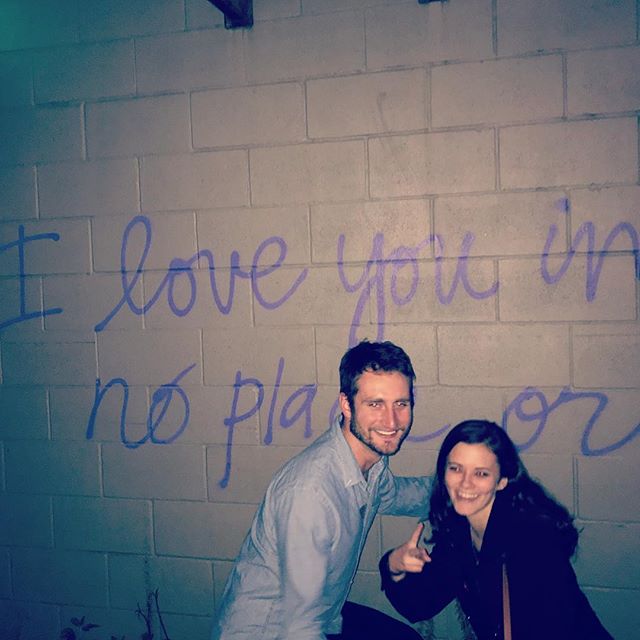 I love you in
no place or